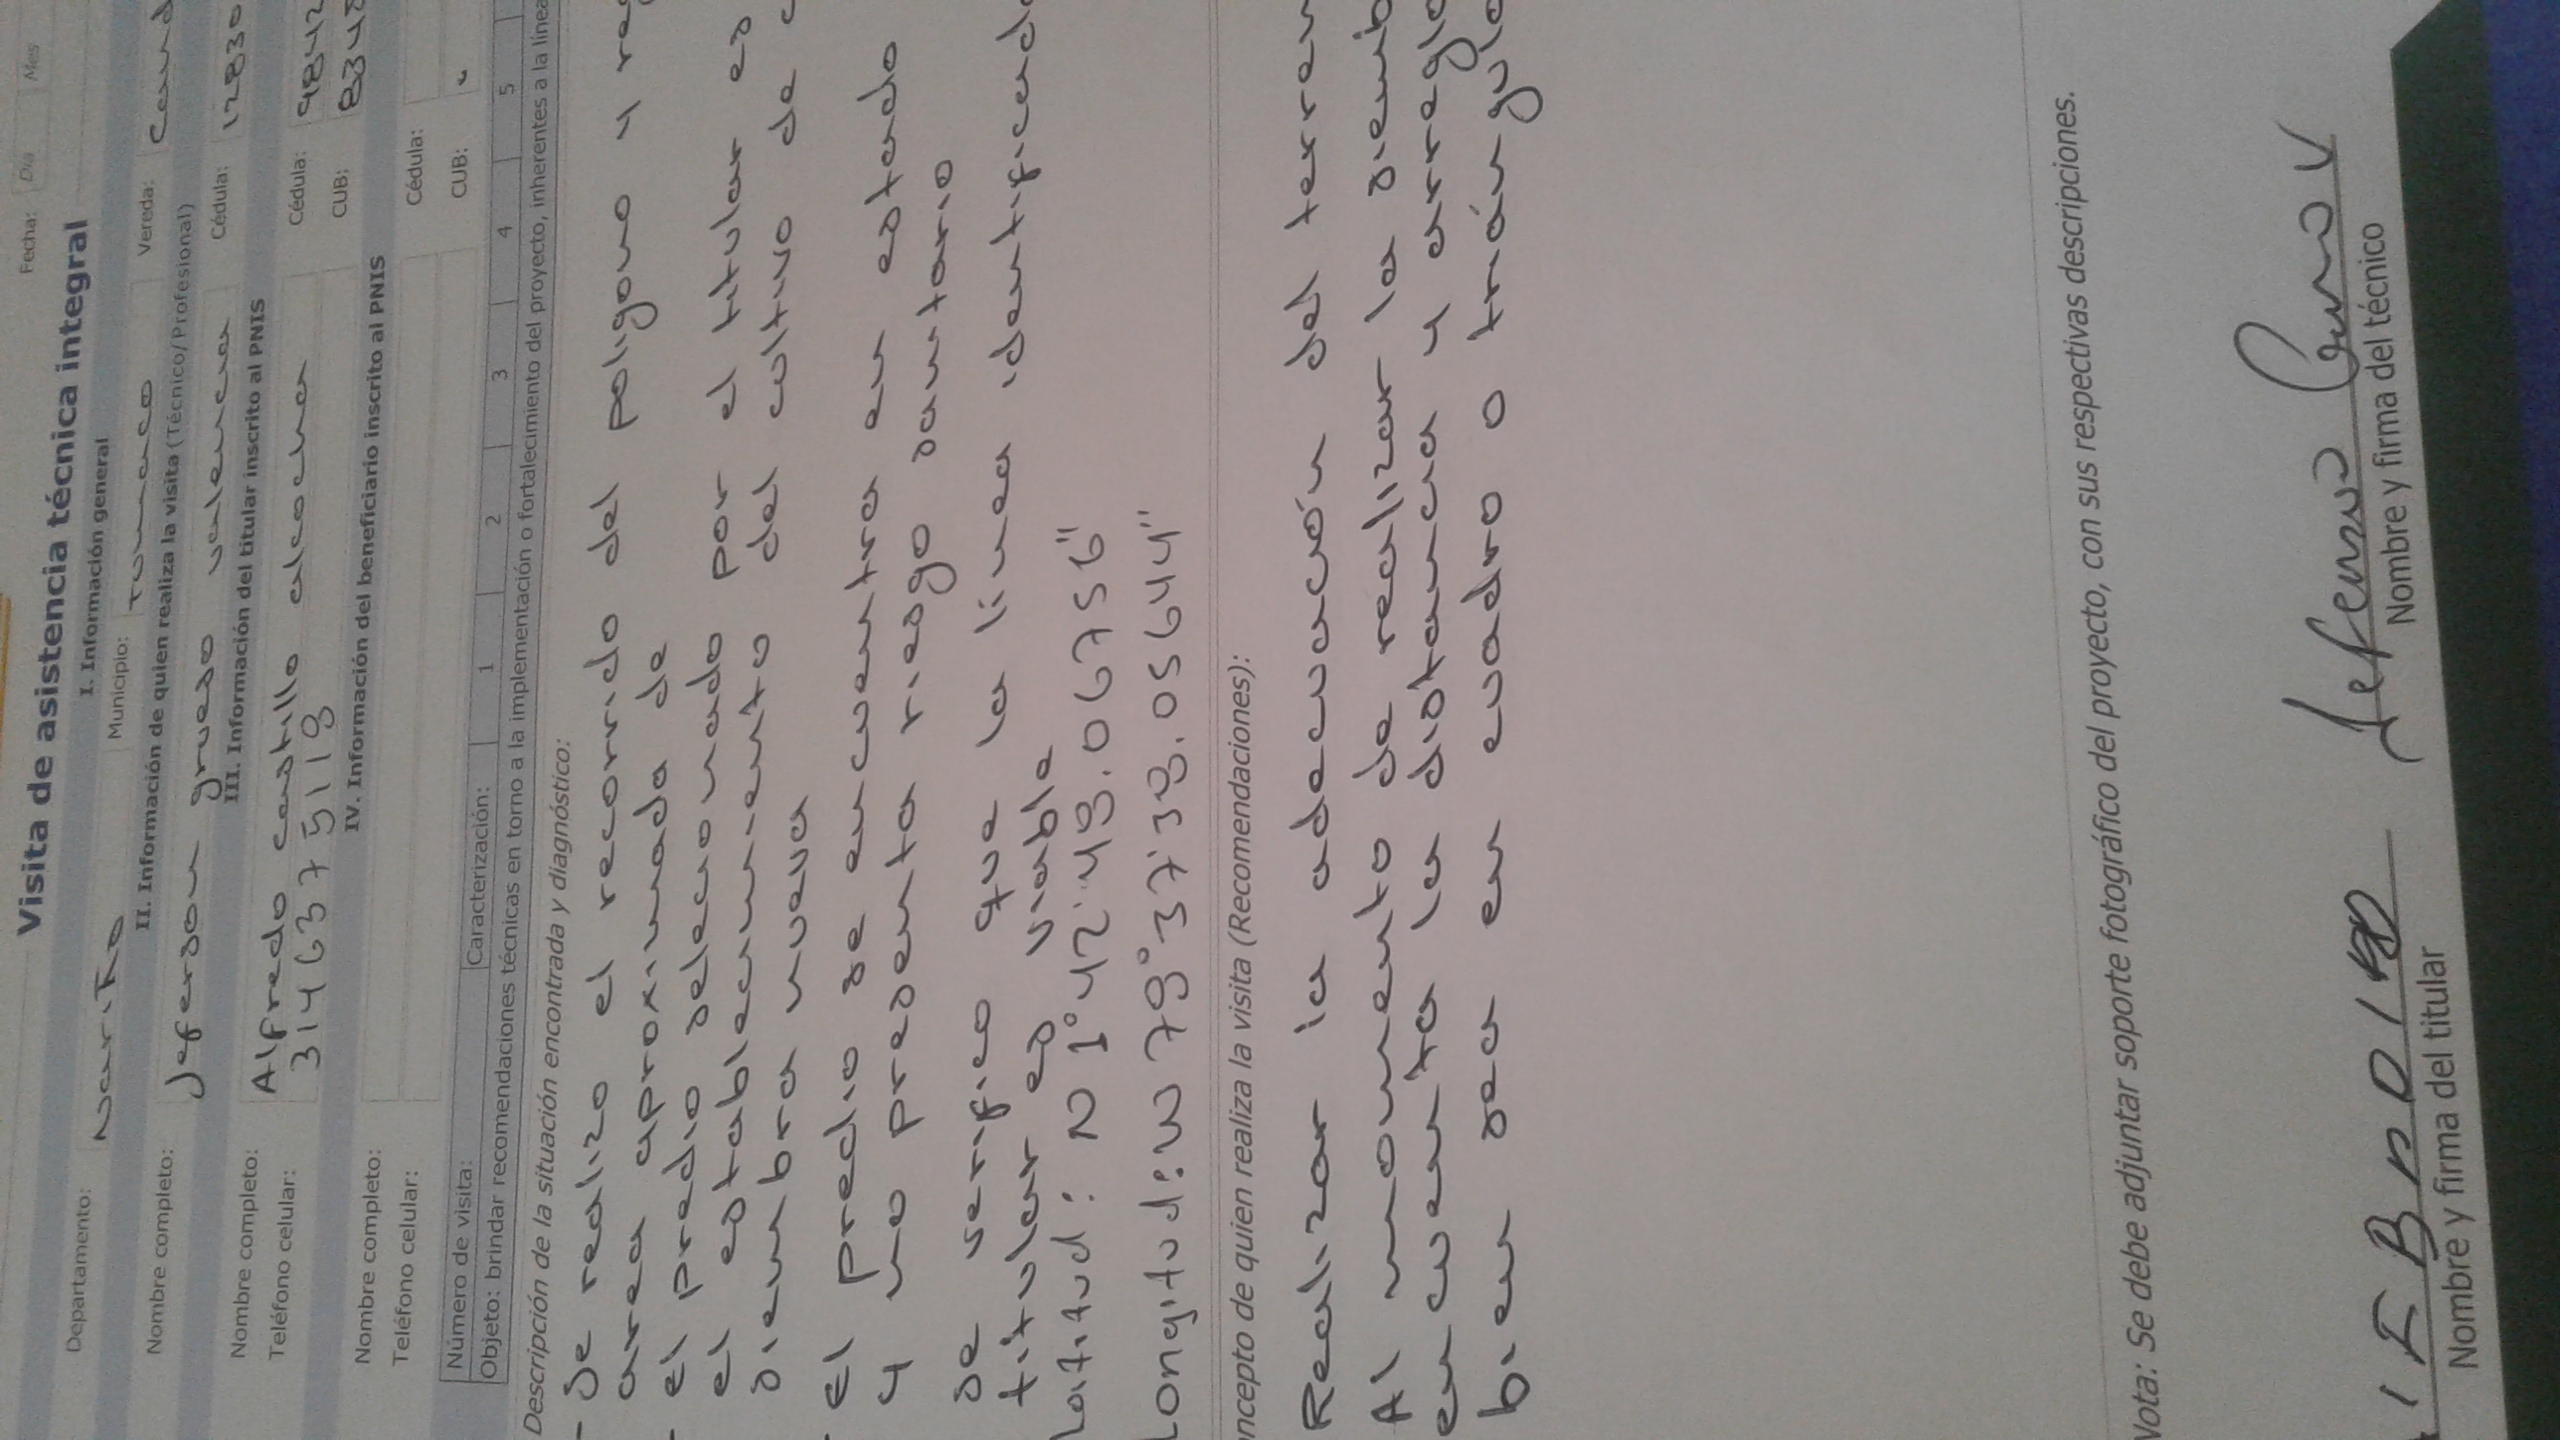 Fecha: Día Mes
Visita de asistencia técnica integral
I. Información general
Departamento: Nariño Municipio: Tumaco Vereda:
II. Información de quien realiza la visita (Técnico/Profesional)
Nombre completo: Jeferson grueso valencia Cédula: 12830
III. Información del titular inscrito al PNIS
Nombre completo: Alfredo castillo Cédula: 9842
Teléfono celular: 3146375118 CUB: 8348
IV. Información del beneficiario inscrito al PNIS
Nombre completo: Cédula:
Teléfono celular: CUB:
Número de visita: Caracterización: 1 2 3 4 5
Objeto: brindar recomendaciones técnicas en torno a la implementación o fortalecimiento del proyecto, inherentes a la línea
Descripción de la situación encontrada y diagnóstico:
- Se realizo el recorrido del poligono y
area aproximada de
- el predio selecionado por el titular es
el establecimiento del cultivo de c
siembra nueva
- El predio se encuentra en estado
y no presenta riesgo sanitario
se verifico que la línea identificada
titular es viable
Latitud: N 1°42'49.06756"
Longitud: W 78°37'39.05644"
ncepto de quien realiza la visita (Recomendaciones):
Realizar la adecuación del terren
Al momento de realizar la siemb
encuenta la distancia y arreglo
bien sea en cuadro o triángulo
Nota: Se debe adjuntar soporte fotográfico del proyecto, con sus respectivas descripciones.
Nombre y firma del titular Nombre y firma del técnico